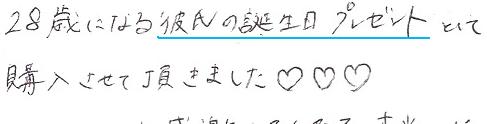 28歳になる彼氏の誕生日プレゼントとして
購入させて頂きました♡♡♡